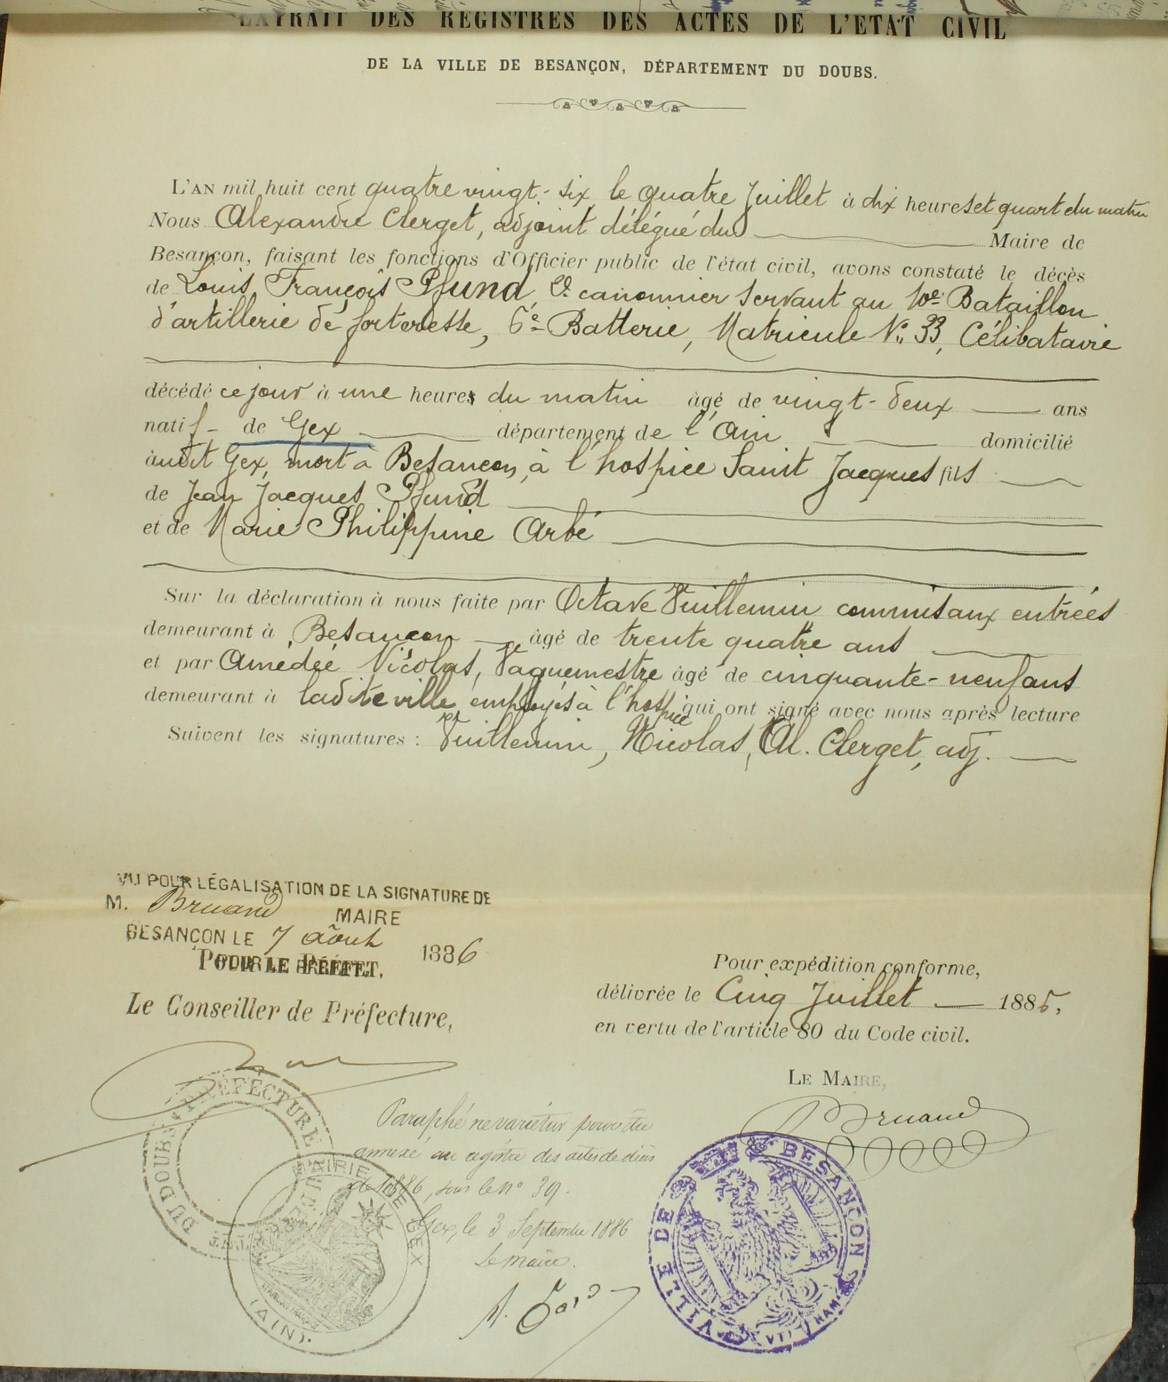 EXTRAIT DES REGISTRES DES ACTES DE L'ÉTAT CIVIL
DE LA VILLE DE BESANÇON, DÉPARTEMENT DU DOUBS.
L'AN mil huit cent quatre vingt-six, le quatre Juillet à dix heures et quart du matin
Nous Alexandre Clerget, adjoint délégué du Maire de
Besançon, faisant les fonctions d'Officier public de l'état civil, avons constaté le décès
de Louis, François Pfund, 2e canonnier servant au 10e Bataillon
d'artillerie de forteresse, 6e Batterie, Matricule No 33, Célibataire
décédé ce jour à une heure du matin âgé de vingt-deux ans
natif de Gex département de l'Ain domicilié
audit Gex, mort à Besançon, à l'hospice Saint Jacques fils
de Jean Jacques Pfund
et de Marie Philippine Arbé
Sur la déclaration à nous faite par Octave Vuillemin commis aux entrées
demeurant à Besançon âgé de trente quatre ans
et par Amédée Nicolas, Vaguemestre âgé de cinquante-neuf ans
demeurant à ladite ville, employés à l'hospice qui ont signé avec nous après lecture
Suivent les signatures : Vuillemin, Nicolas, Al. Clerget, adj.
VU POUR LÉGALISATION DE LA SIGNATURE DE
M. Bruand MAIRE
BESANÇON LE 7 août 1886
POUR LE PRÉFET,
Le Conseiller de Préfecture,
Pour expédition conforme,
délivrée le Cinq Juillet 1886,
en vertu de l'article 80 du Code civil.
LE MAIRE,
Bruand
Paraphé ne varietur pour être
annexé au registre des actes de décès
de 1886, sous le no 39.
Gex, le 3 Septembre 1886
Le maire.
PRÉFECTURE DU DOUBS
MAIRIE DE GEX
(AIN)
VILLE DE BESANÇON